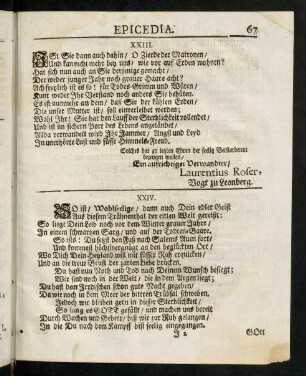 EPICEDIA. 67
XXIII.
ISt Sie dann auch dahin / O Zierde der Matronen /
Und kan nicht mehr bey uns / wie vor auf Erden wohnen?
Hat sich nun auch an Sie derjenige gemacht /
Der weder junger Jahr noch grauer Haare acht?
Ach freylich ist es so: für Todes Grimm und Wüten /
Kunt weder Ihr Verstand noch anders Sie behüten.
Es ist nunmehr an dem / daß Sie der kühlen Erden /
Die unser Mutter ist / soll einverleibet werden;
Wohl Ihr! Sie hat den Lauff der Sterblichkeit vollendet /
Und ist am sichern Port des Lebens angeländet /
Alda verwandelt wird Ihr Jammer / Angst und Leyd
In unerhörte Lust und süsse Himmels-Freud.
Solches hat zu letzten Ehren der seelig Verstorbenen
bezeugen wollen /
Ein aufrichtiger Verwandter /
Laurentius Roser,
Vogt zu Leonberg.
XXIV.
SO ist / Wohlselige / dann auch Dein edler Geist
Aus diesem Thränenthal der eitlen Welt gereißt:
So liege Dein Leib noch vor dem Winter grauer Jahre /
In einem schwartzen Sarg / und auf der Todten-Baare.
So ists: Du setzst den Fuß nach Salems Aum fort /
Und kommest höchstvergnügt an den beglückten Ort /
Wo Dich Dein Heyland will mit süssen Kuß erquicken /
Und an die treue Brust der zarten Liebe drücken.
Du hast nun Noth und Tod nach Deinem Wunsch besiegt;
Wir sind noch in der Welt / die in dem Argen liegt;
Du hast dem Irrdischen schon gute Nacht gegeben /
Da wir noch in dem Meer der bittern Trübsal schweben.
Jedoch wir bleiben gern in dieser Sterblichkeit /
So lang es GOTT gefällt / und machen uns bereit
Durch Wachen und Gebett / biß wir zur Ruh gelangen /
In die Du nach dem Kampff bist seelig eingegangen.
I 2 GOtt